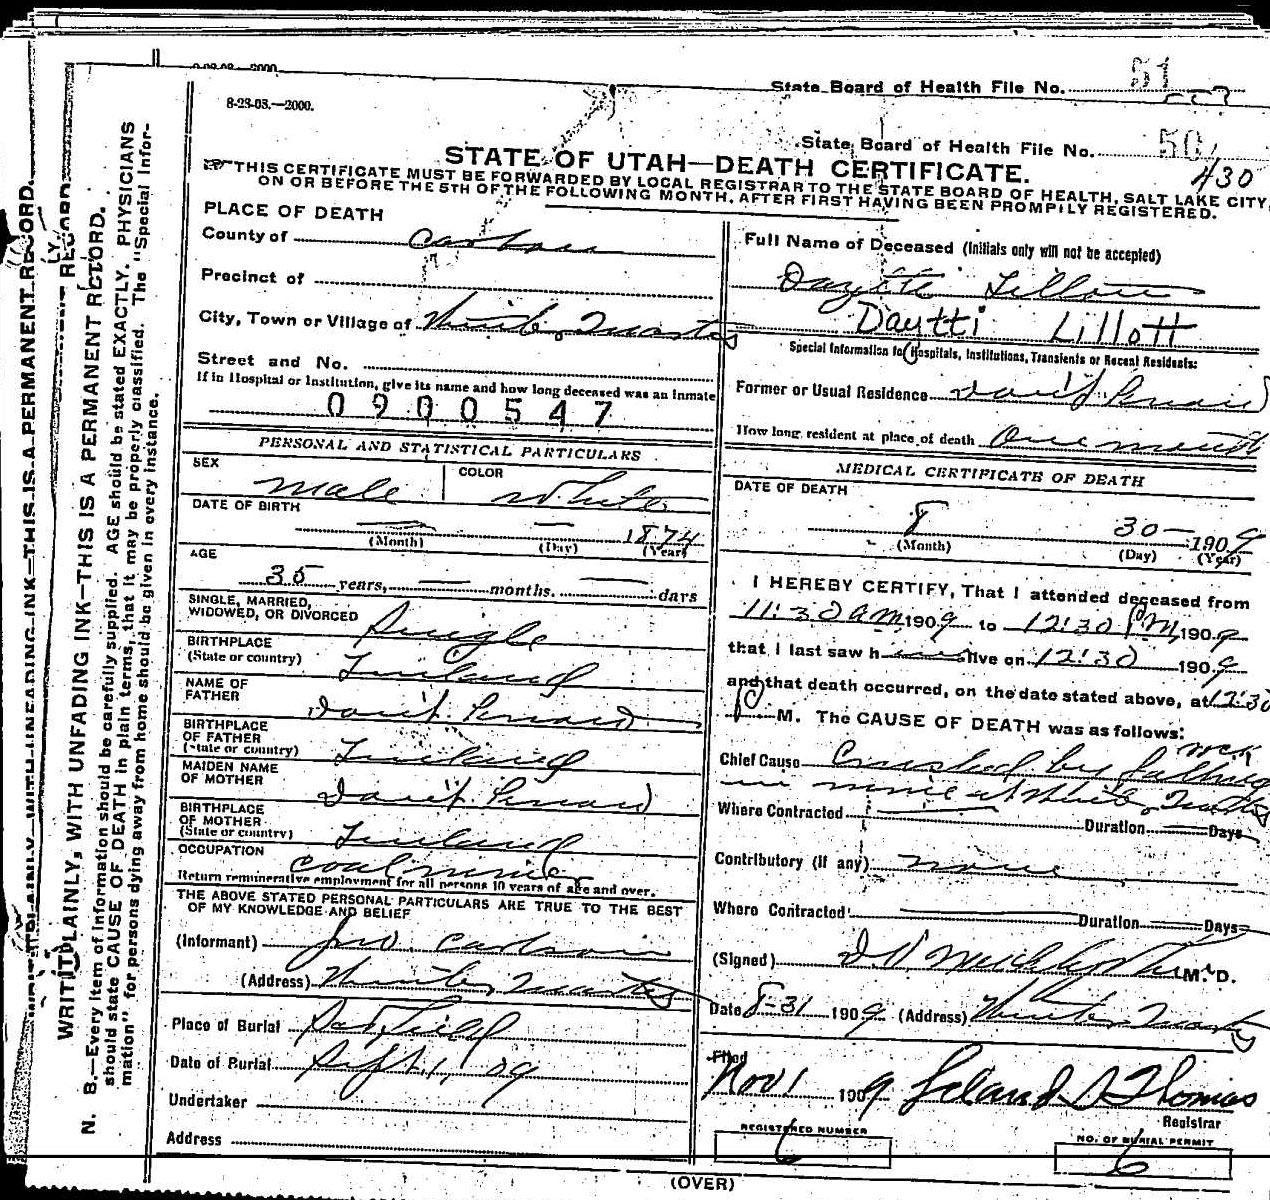 8-28-08.—2000.
State Board of Health File No. 51
State Board of Health File No. 50
430
STATE OF UTAH—DEATH CERTIFICATE.
THIS CERTIFICATE MUST BE FORWARDED BY LOCAL REGISTRAR TO THE STATE BOARD OF HEALTH, SALT LAKE CITY,
ON OR BEFORE THE 5TH OF THE FOLLOWING MONTH, AFTER FIRST HAVING BEEN PROMPTLY REGISTERED.
WRITE PLAINLY, WITH UNFADING INK—THIS IS A PERMANENT RECORD.
N. B.—Every item of information should be carefully supplied. AGE should be stated EXACTLY. PHYSICIANS
should state CAUSE OF DEATH in plain terms, that it may be properly classified. The "Special Infor-
mation" for persons dying away from home should be given in every instance.
PLACE OF DEATH
County of Carbon
Precinct of
City, Town or Village of Winter Quarters
Street and No.
If in Hospital or Institution, give its name and how long deceased was an Inmate
0900547
PERSONAL AND STATISTICAL PARTICULARS
SEX male COLOR White
DATE OF BIRTH — — 1874
(Month) (Day) (Year)
AGE
35 years, — months. — days
SINGLE, MARRIED,
WIDOWED, OR DIVORCED Single
BIRTHPLACE
(State or country) Finland
NAME OF
FATHER Don't
BIRTHPLACE
OF FATHER
(State or country) Finland
MAIDEN NAME
OF MOTHER Don't
BIRTHPLACE
OF MOTHER
(State or country) Finland
OCCUPATION coal miner
Return remunerative employment for all persons 10 years of age and over.
THE ABOVE STATED PERSONAL PARTICULARS ARE TRUE TO THE BEST
OF MY KNOWLEDGE AND BELIEF
(Informant) Jno.
(Address) Winter Quarters
Place of Burial Scofield
Date of Burial Sept. 1, 09
Undertaker
Address
Full Name of Deceased (Initials only will not be accepted)
Daytti Lillott
Special Information for Hospitals, Institutions, Transients or Recent Residents:
Former or Usual Residence Don't
How long resident at place of death One month
MEDICAL CERTIFICATE OF DEATH
DATE OF DEATH
8 30— 1909
(Month) (Day) (Year)
I HEREBY CERTIFY, That I attended deceased from
11:30 am 1909 to 12:30 PM, 1909
that I last saw him alive on 12:30 1909
and that death occurred, on the date stated above, at 12:30
P M. The CAUSE OF DEATH was as follows:
Chief Cause Crushed by falling rock
in mine at Winter Quarters
Where Contracted — Duration — Days
Contributory (if any) none
Where Contracted — Duration — Days
(Signed) M. D.
Date 8-31 1909 (Address) Winter Quarters
Filed
Nov 1 1909 Leland S Thomas
Registrar
REGISTERED NUMBER
6
NO. OF BURIAL PERMIT
6
(OVER)